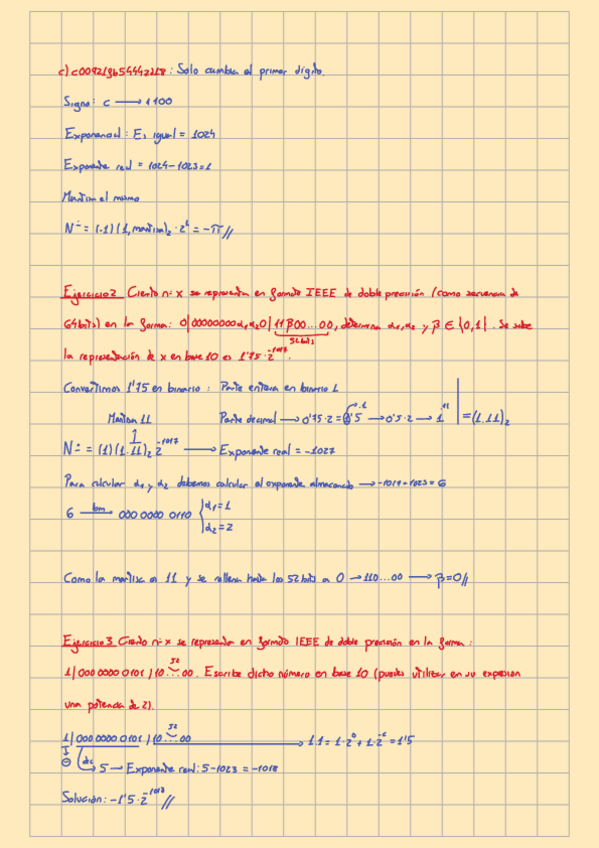 c) c00921fb54442d18 : Solo cambia el primer dígito.
Signo: c → 1100
Exponencial : E, igual = 1024
Exponente real = 1024-1023=1
Mantisa el mismo
Nº = (-1)(1,mantisa)₂ · 2¹ = -π //
Ejercicio 2 Cierto nº x se representa en formato IEEE de doble precisión (como secuencia de
64 bits) en la forma: 0|00000000α₁α₂0|11β00...00, determina α₁,α₂ y β ∈ {0,1}. Se sabe
52 bits
la representación de x en base 10 es 1'75·2⁻¹⁰¹⁷.
Convertimos 1'75 en binario : Parte entera en binario 1
Mantisa 11 Parte decimal → 0'75·2=1'5 → 0'5·2 → 1 = (1.11)₂
Nº = (1)(1.11)₂ 2⁻¹⁰¹⁷ → Exponente real = -1027
Para calcular α₁ y α₂ debemos calcular el exponente almacenado → -1017-1023=6
6 → bin 000 0000 0110 { α₁=1
α₂=2
Como la mantisa es 11 y se rellena hasta los 52 bits a 0 → 110...00 → β=0//
Ejercicio 3 Cierto nº x se representa en formato IEEE de doble precisión en la forma :
1|000 0000 0101 |10...00. Escribe dicho número en base 10 (puedes utilizar en su expresión
52
una potencia de 2).
52
1|000 0000 0101 |10...00 → 1.1 = 1·2⁰ + 1·2⁻¹ = 1'5
⊖ dec 5 → Exponente real: 5-1023 = -1018
Solución: -1'5·2⁻¹⁰¹⁸ //